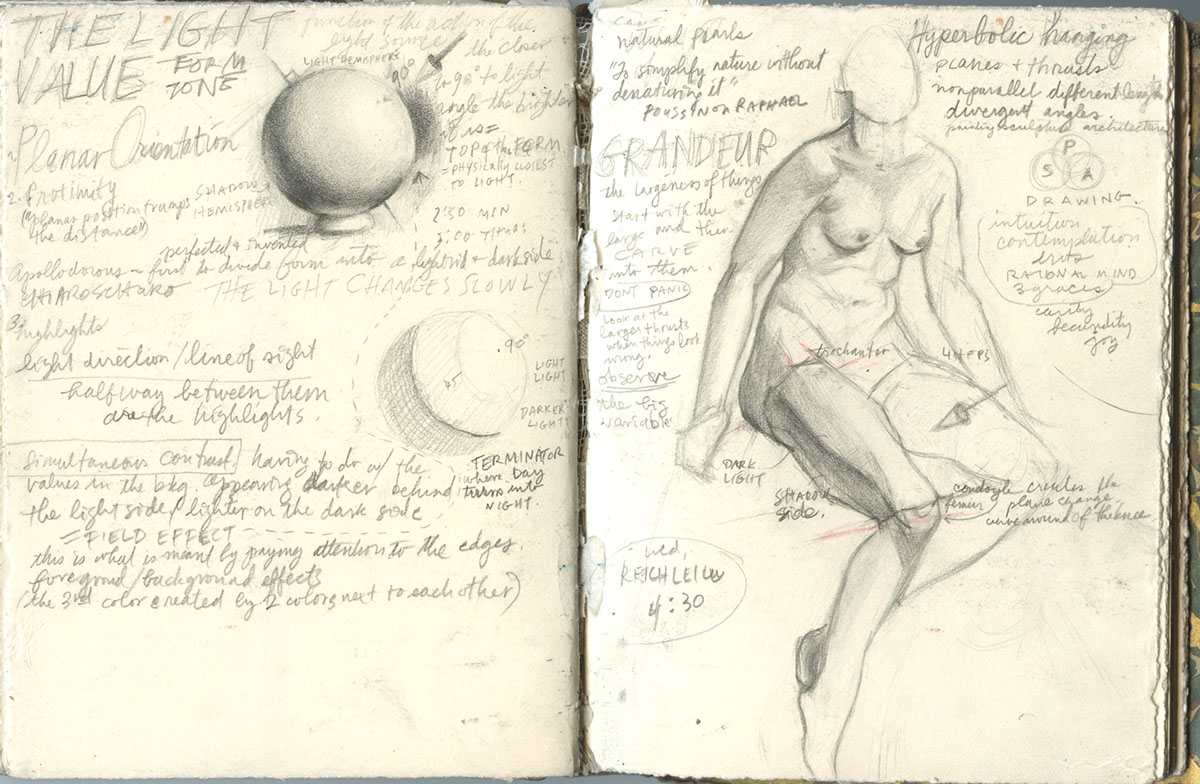 THE LIGHT
VALUE FORM
TONE
function of the action of the
light source
the closer
to 90° to light
angle the brighter
it is =
TOP of the FORM
= PHYSICALLY CLOSEST
TO LIGHT.
LIGHT HEMISPHERE
90°
1. Planar Orientation
2. Proximity
("planar position trumps
the distance")
SHADOW
HEMISPHERE
2:30 MIN
perfected & invented
Apollodorous - first to divide form into a lightside + darkside
CHIAROSCHURO THE LIGHT CHANGES SLOWLY
3. highlights
light direction/line of sight
halfway between them
are the highlights.
.90°
45°
LIGHT
LIGHT
DARKER
LIGHT
TERMINATOR
where Day
turns into
NIGHT.
Simultaneous Contrast having to do w/ the
values in the bkg. appearing darker behind
the light side/lighter on the dark side
= FIELD EFFECT
this is what is meant by paying attention to the edges.
foregrond/background effects
(the 3rd color created by 2 colors next to each other)
natural pearls
"To simplify nature without
denaturing it"
POUSSIN ON RAPHAEL
GRANDEUR
the largeness of things
start with the
large and then
CARVE
into them.
DONT PANIC
look at the
larger thrusts
when things look
wrong.
observe
the big
variable
Hyperbolic hanging
planes + thrusts
nonparallel different lengths
divergent angles.
painting sculpture architecture
P
S A
DRAWING.
intuition
contemplation
RATIONAL MIND
3 graces
fecundity
joy
trochanter
4 HEADS
DARK
LIGHT
SHADOW
side.
condoyle creates the
femur plane change
curve around of the knee
wed,
REICHLEIW
4:30